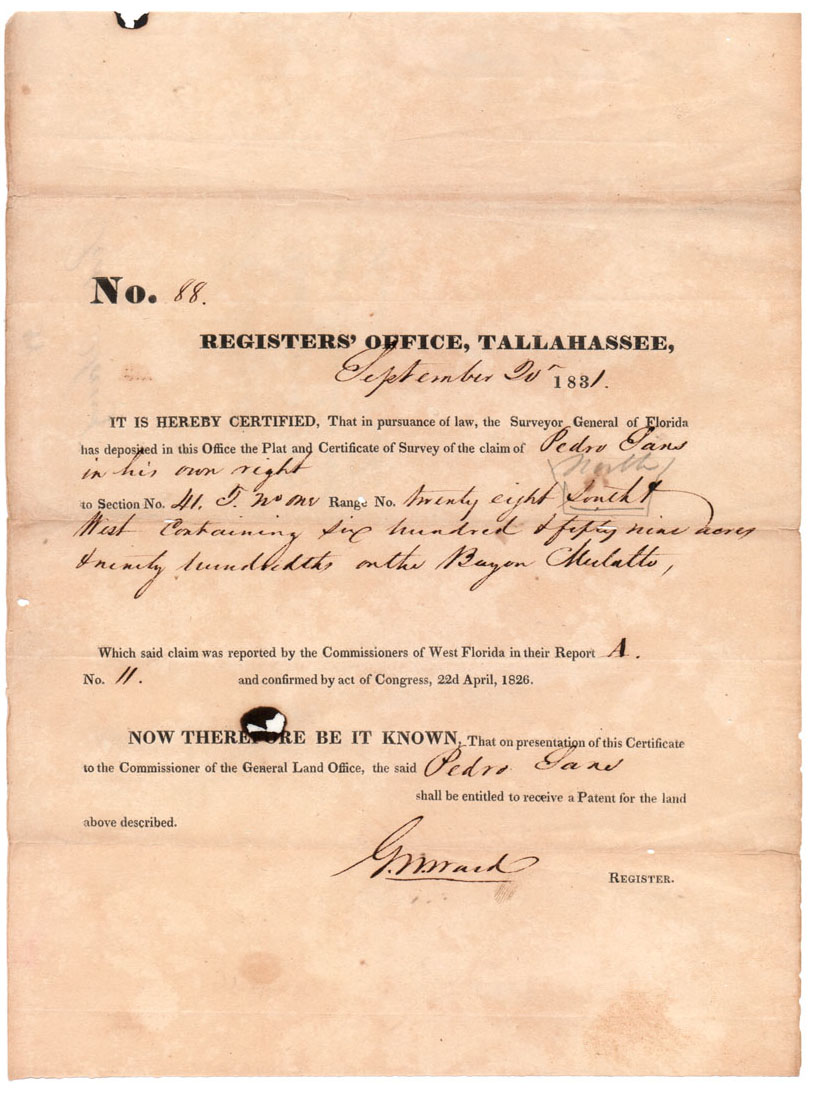 No. 88.
REGISTERS' OFFICE, TALLAHASSEE,
September 20th 1831.
IT IS HEREBY CERTIFIED, That in pursuance of law, the Surveyor General of Florida
has deposited in this Office the Plat and Certificate of Survey of the claim of Pedro Sans
in his own right
North
to Section No. 41. T. No one Range No. twenty eight South &
West Containing six hundred & fifty nine acres
& ninety hundredths on the Bayou Mulatto,
Which said claim was reported by the Commissioners of West Florida in their Report A.
No. 11. and confirmed by act of Congress, 22d April, 1826.
NOW THEREFORE BE IT KNOWN, That on presentation of this Certificate
to the Commissioner of the General Land Office, the said Pedro Sans
shall be entitled to receive a Patent for the land
above described.
G. W. Ward
REGISTER.